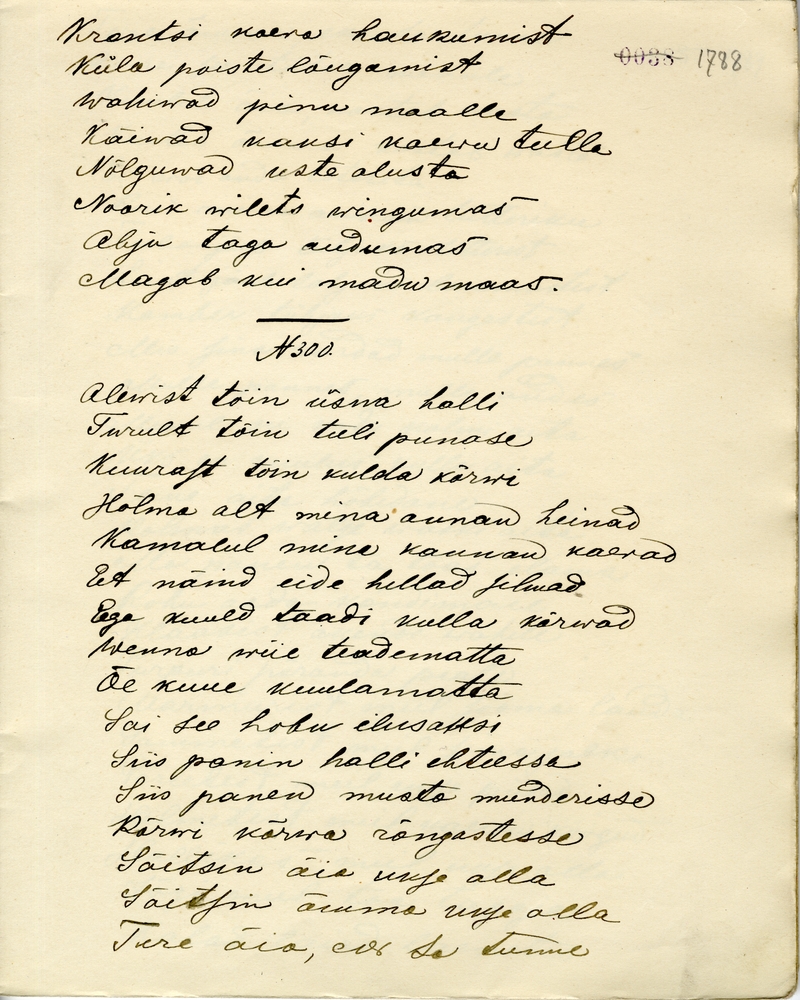 Krantsi kaera haukumist
0038 1788
Küla poiste lõugamist
Wahiwad pinu maalle
Käiwad kaksi kaewu tulla
Nõlguwad uste alusta
Noorik wilets wingumas
Ahju taga audumas
Magab kui madu maas.
N 300.
Alewist tõin üsna halli
Turult tõin tuli punase
Kuurast tõin kulda kõrwi
Hõlma alt mina annan heinad
Kamalul mina kannan kaerad
Et näind eide hellad silmad
Ega kuuld taadi kulla kõrwad
Wenna wiie teadematta
Õe kuue kuulamatta
Sai see hobu ilusaksi
Siis panin halli ehtessa
Siis panen musta munderisse
Kõrwi kõrwa rõngastesse
Sõitsin äia ukse alla
Sõitsin ämma ukse alla
Ture äia, sa tunne